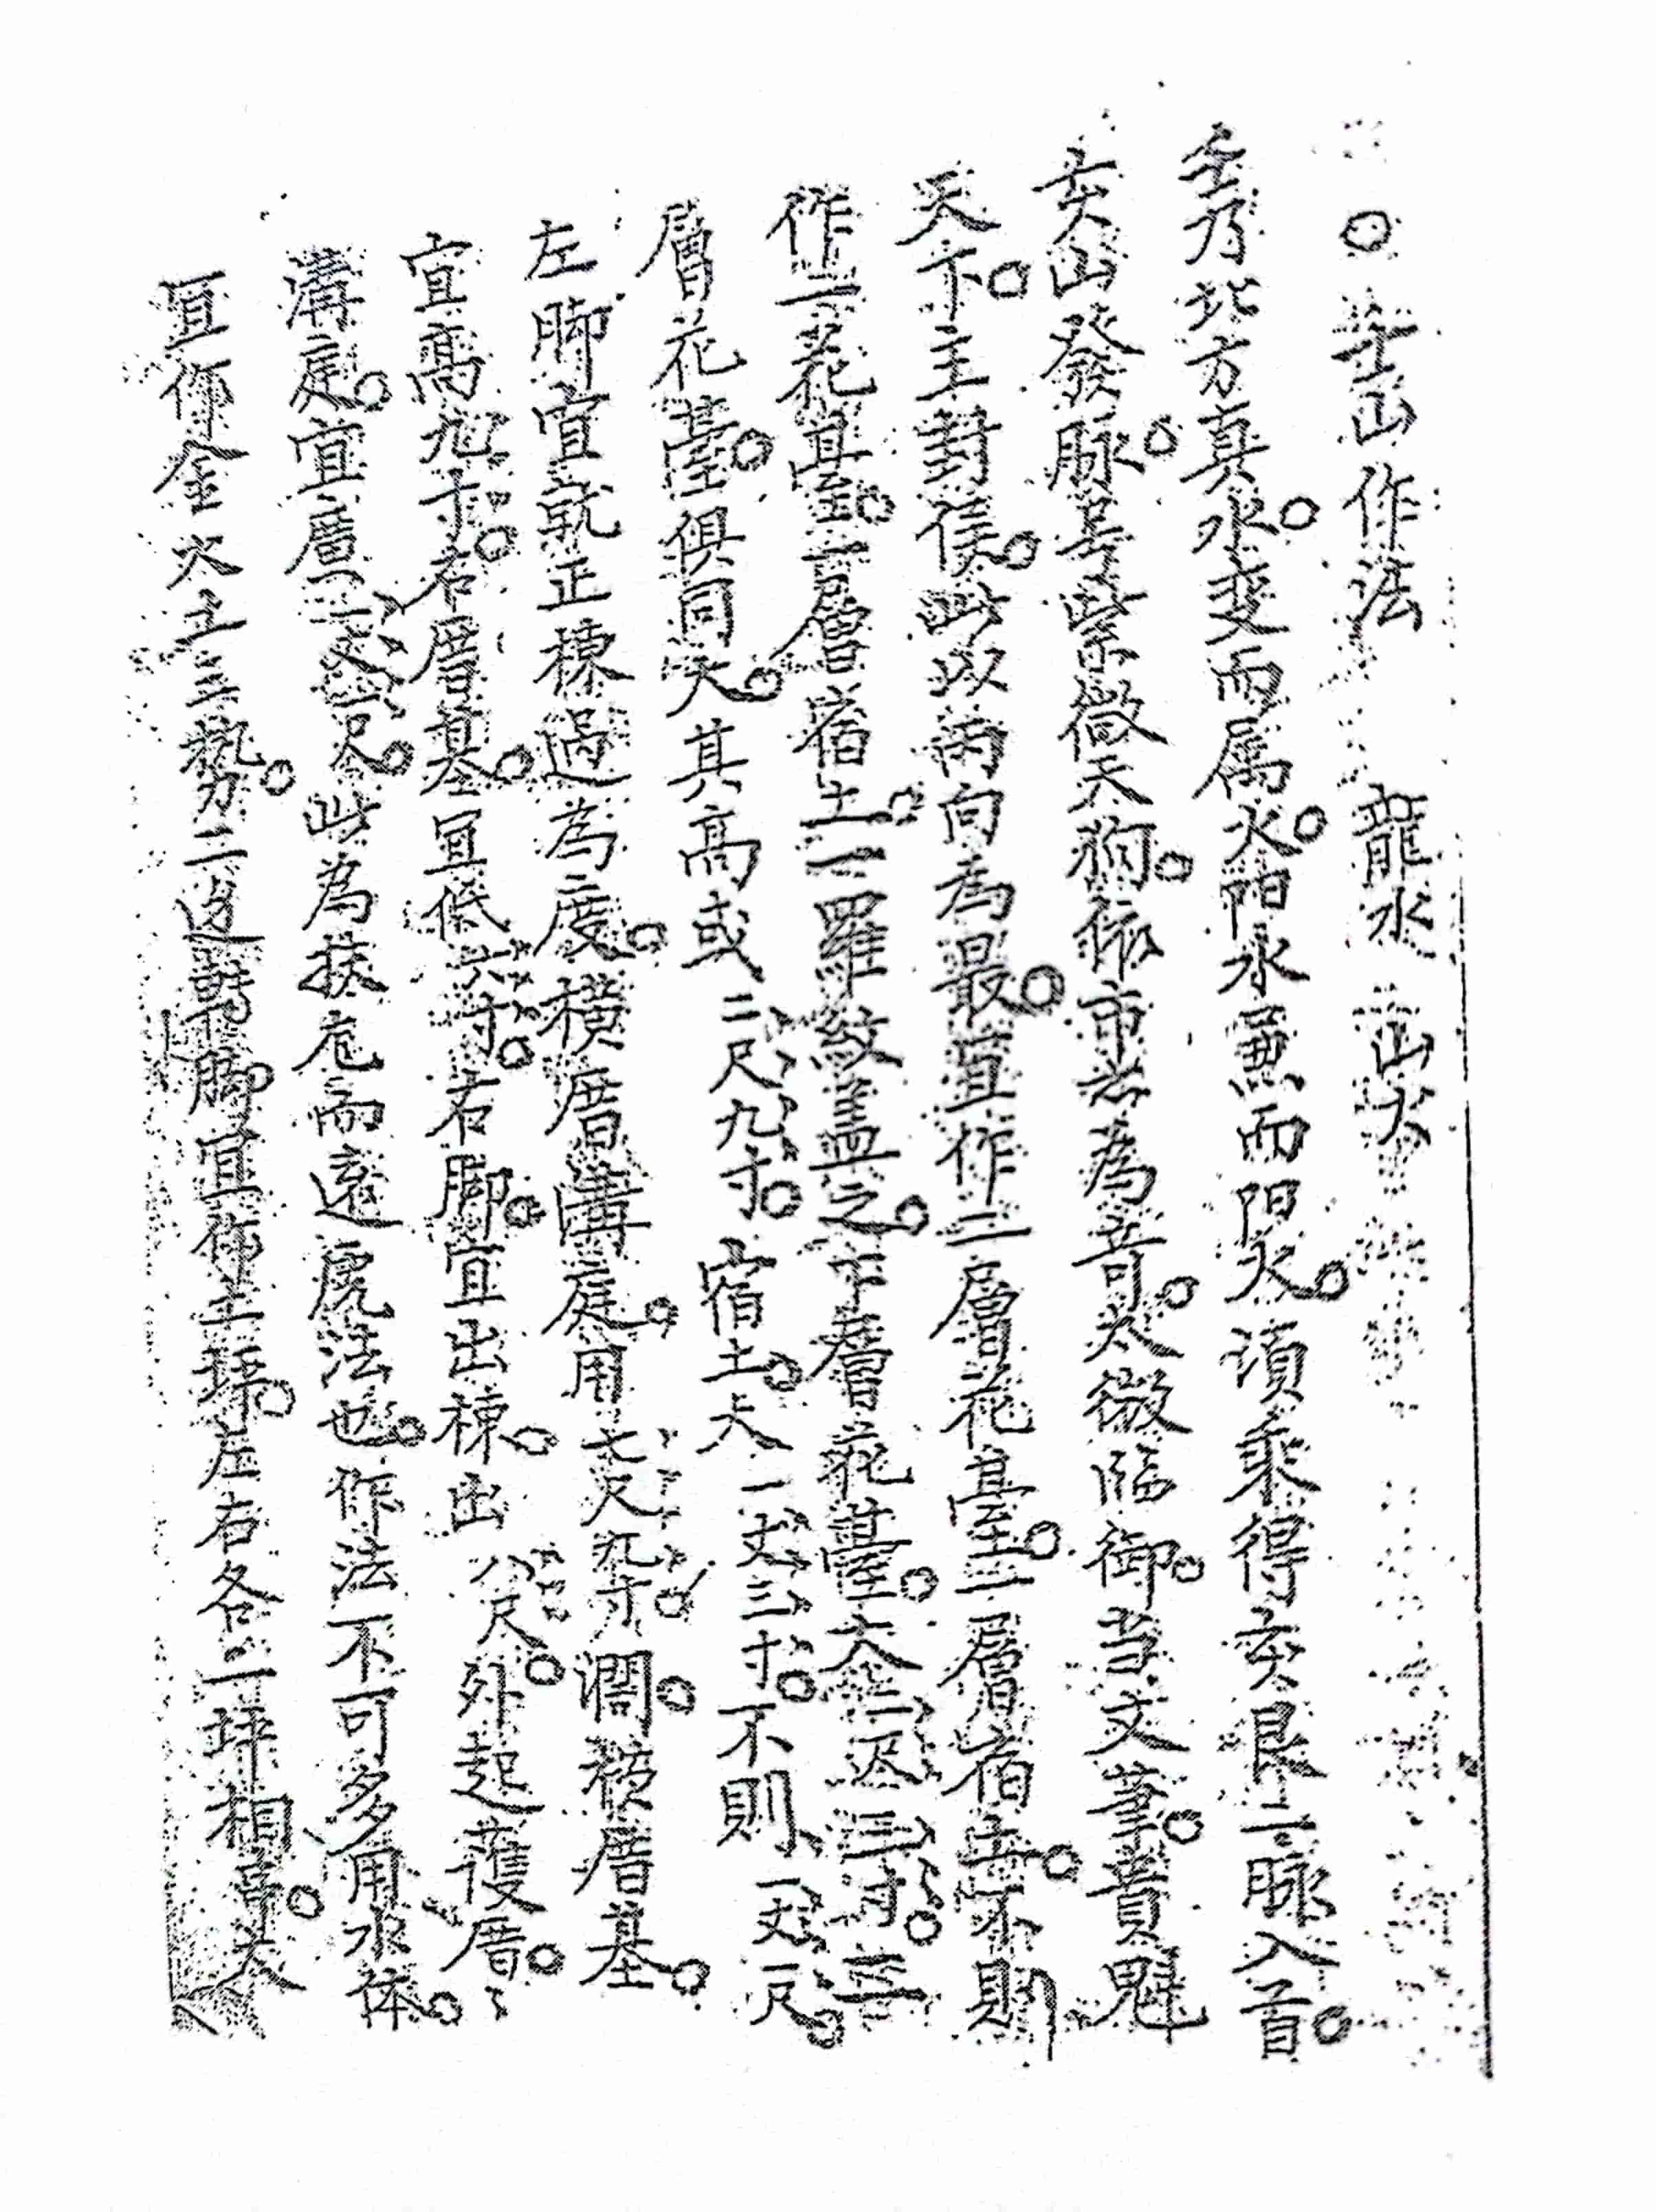 ○壬山作法　龍水　山火
壬乃北方真水○变而属火○阳水兼而阳火○須乘得亥艮二脉入首○
亥山發脉○号紫微天狗○依市者為奇○太微臨御○当文筆○貴魁
天下○主封侯○此以丙向為最○宜作二層花臺○一層宿土○不則
作二花臺○一層宿土○一羅紋盖之○中層花臺○大二丈三寸○
層花臺○俱同大○其高或二尺九寸○宿土○大一丈三寸○不則一丈一尺○
左脚宜就正棟過為度○横厝溝庭○用七尺九寸○濶○横厝基○
宜高九寸○右厝基○宜低六寸○右脚○宜出棟○出八尺○外起護厝○
溝庭○宜廣一丈二尺○此為扶危而遠虎法也○作法不可多用水体○
宜作金火土三勢○二边臂脚宜作土埕○左右各二埕相